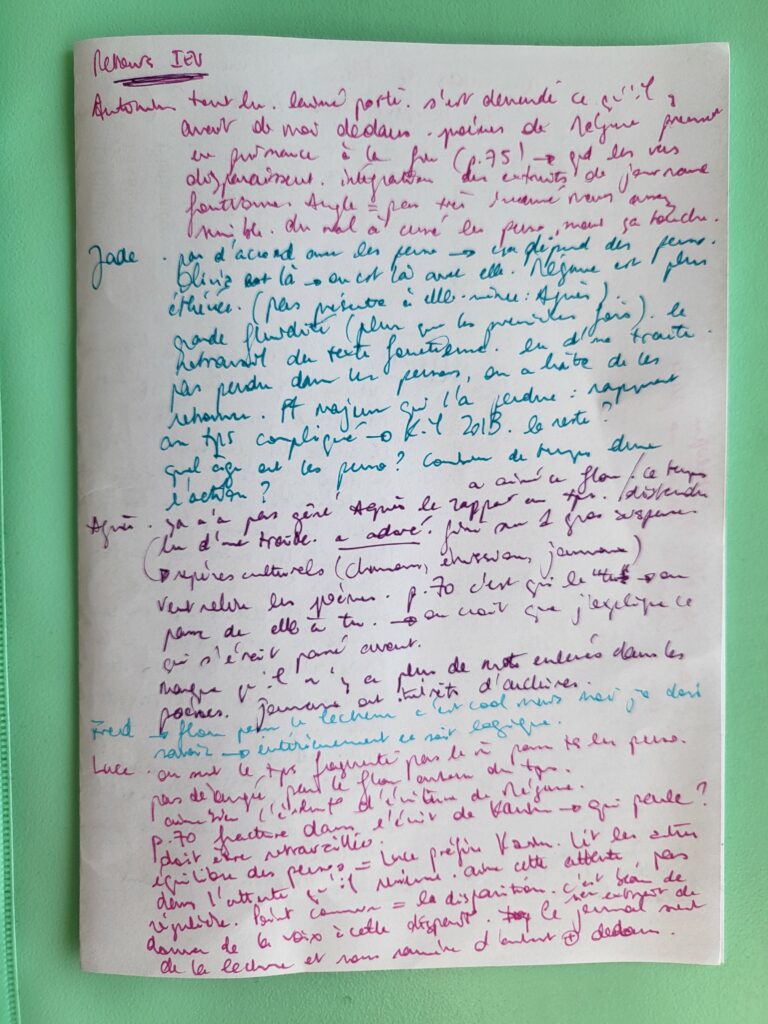 Retours IEU
tout lu. s'est demandé ce qu'il y
avait de moi dedans. poèmes de Régine prennent
en puissance à la fin (p.75) → que les vers
disparaissent. intégration des extraits de journaux
fonctionne. Angle = pas très
du mal à les perso, mais ça touche.
Jade . pas d'accord avec les perso → ça dépend des perso.
Olivia est là → on est là avec elle. Régine est plus
éthérée. (pas présente à elle-même : Agnès)
grande fluidité (plus que les premières fois). le
retravail du texte fonctionne. lu d'une traite.
pas perdu dans les persos, on a hâte de les
retrouver. pt majeur qui l'a perdue : rapport
au tps compliqué → K.Y 2013. le reste ?
quel âge ont les perso ? combien de temps dure
l'action ?
a aimé ce flou / ce temps
Agnès . ça n'a pas gêné Agnès le rapport au tps. / distendu
(lu d'une traite. a adoré. fini sur 1 gros suspense
repères culturels (chansons, émissions, journaux)
veut relire les poèmes. p.70 c'est qui le "tu" → on
passe de elle à tu. → on croit que j'explique ce
qui s'était passé avant.
manque qu'il n'y a plus de mots enlevés dans les
poèmes. journaux ont d'archives.
Fred → flou pour le lecteur c'est cool mais moi je dois
savoir → intérieurement ce soit logique.
Luce . on sent le tps fragmenté par le passe ts les perso.
pas dérangée par le flou autour du tps.
aime bien d'écriture de Régine.
p.70 fracture dans l'écrit de Karin → qui parle ?
doit être retravaillée.
équilibre des persos = Luce préfère Karin. Lit les autres
dans l'attente qu'il revienne. aime cette attente, pas
régulière. Point commun = la disparition. c'est beau de
donner de la voix à cette dispar. le journal sert
de la lecture et nous ramène d'autant + dedans.